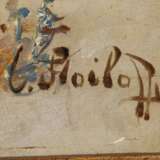 C. Stoiloff